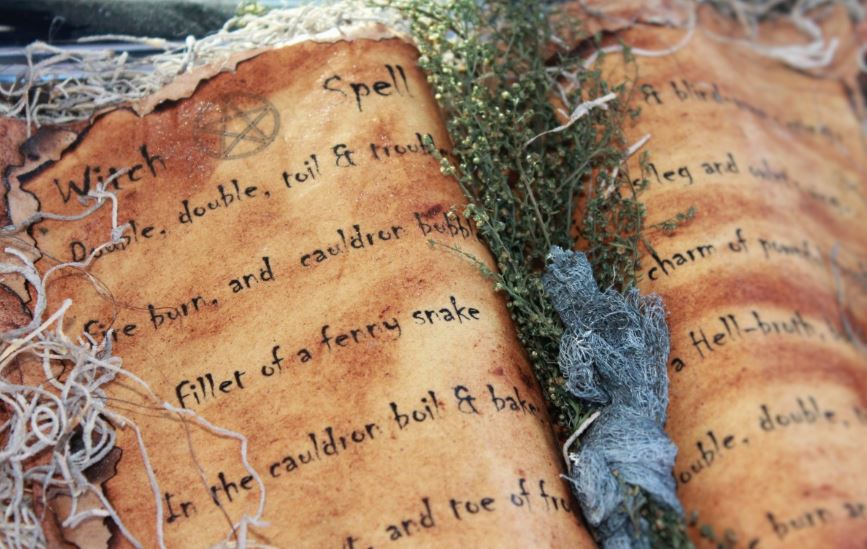 Witch Spell
Double, double, toil & trouble,
Fire burn, and cauldron bubbl
Fillet of a fenny snake
In the cauldron boil & bake
and toe of fro
& blind
s leg and
charm of
a Hell-broth,
ouble, double,
burn an